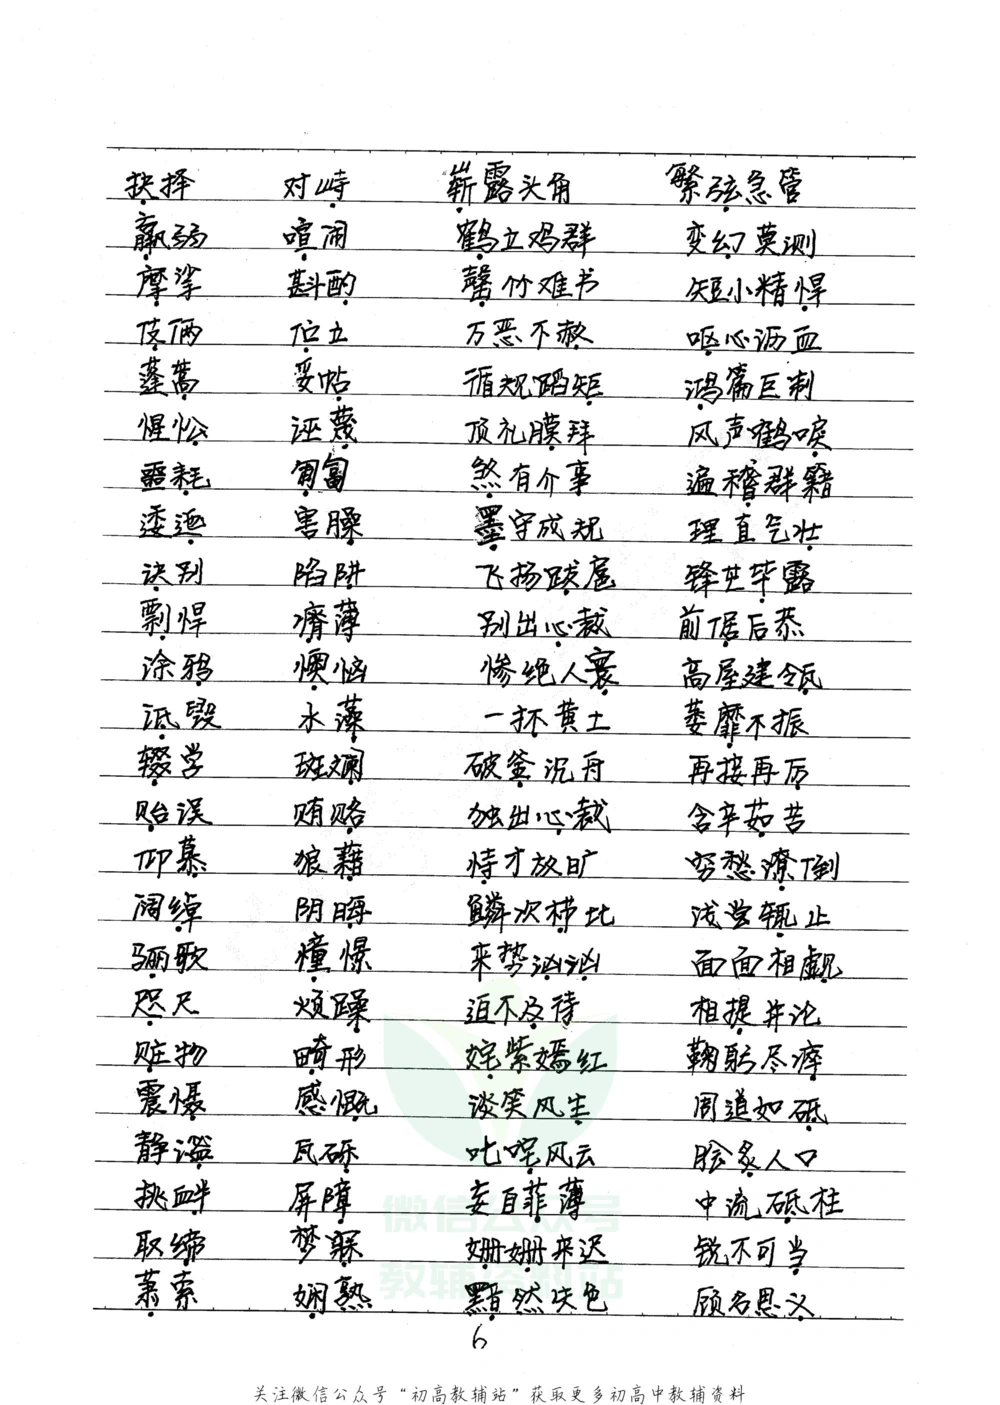 抉择 对峙 崭露头角 繁弦急管
羸弱 喧闹 鹤立鸡群 变幻莫测
摩挲 斟酌 罄竹难书 短小精悍
伎俩 伫立 万恶不赦 呕心沥血
蓬蒿 妥帖 循规蹈矩 鸿篇巨制
惺忪 诬蔑 顶礼膜拜 风声鹤唳
噩耗 匍匐 煞有介事 遍稽群籍
逶迤 害臊 墨守成规 理直气壮
诀别 陷阱 飞扬跋扈 锋芒毕露
剽悍 瘠薄 别出心裁 前倨后恭
涂鸦 懊恼 惨绝人寰 高屋建瓴
诋毁 水藻 一抔黄土 萎靡不振
辍学 斑斓 破釜沉舟 再接再厉
贻误 贿赂 独出心裁 含辛茹苦
仰慕 狼藉 恃才放旷 穷愁潦倒
阔绰 阴晦 鳞次栉比 浅尝辄止
骊歌 憧憬 来势汹汹 面面相觑
咫尺 烦躁 迫不及待 相提并论
赃物 畸形 姹紫嫣红 鞠躬尽瘁
震慑 感慨 谈笑风生 周道如砥
静谧 瓦砾 叱咤风云 脍炙人口
挑衅 屏障 妄自菲薄 中流砥柱
取缔 梦寐 姗姗来迟 锐不可当
萧索 娴熟 黯然失色 顾名思义
微信公众号
教辅资料站
6
关注微信公众号“初高教辅站”获取更多初高中教辅资料